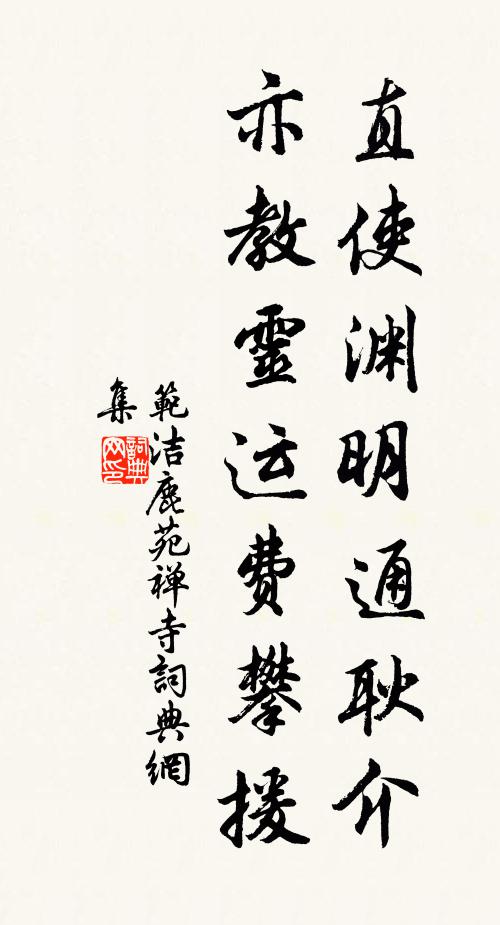 直使渊明通耿介
亦教靈运費攀援
範洁鹿苑禅寺詞典網
集
詞典网印